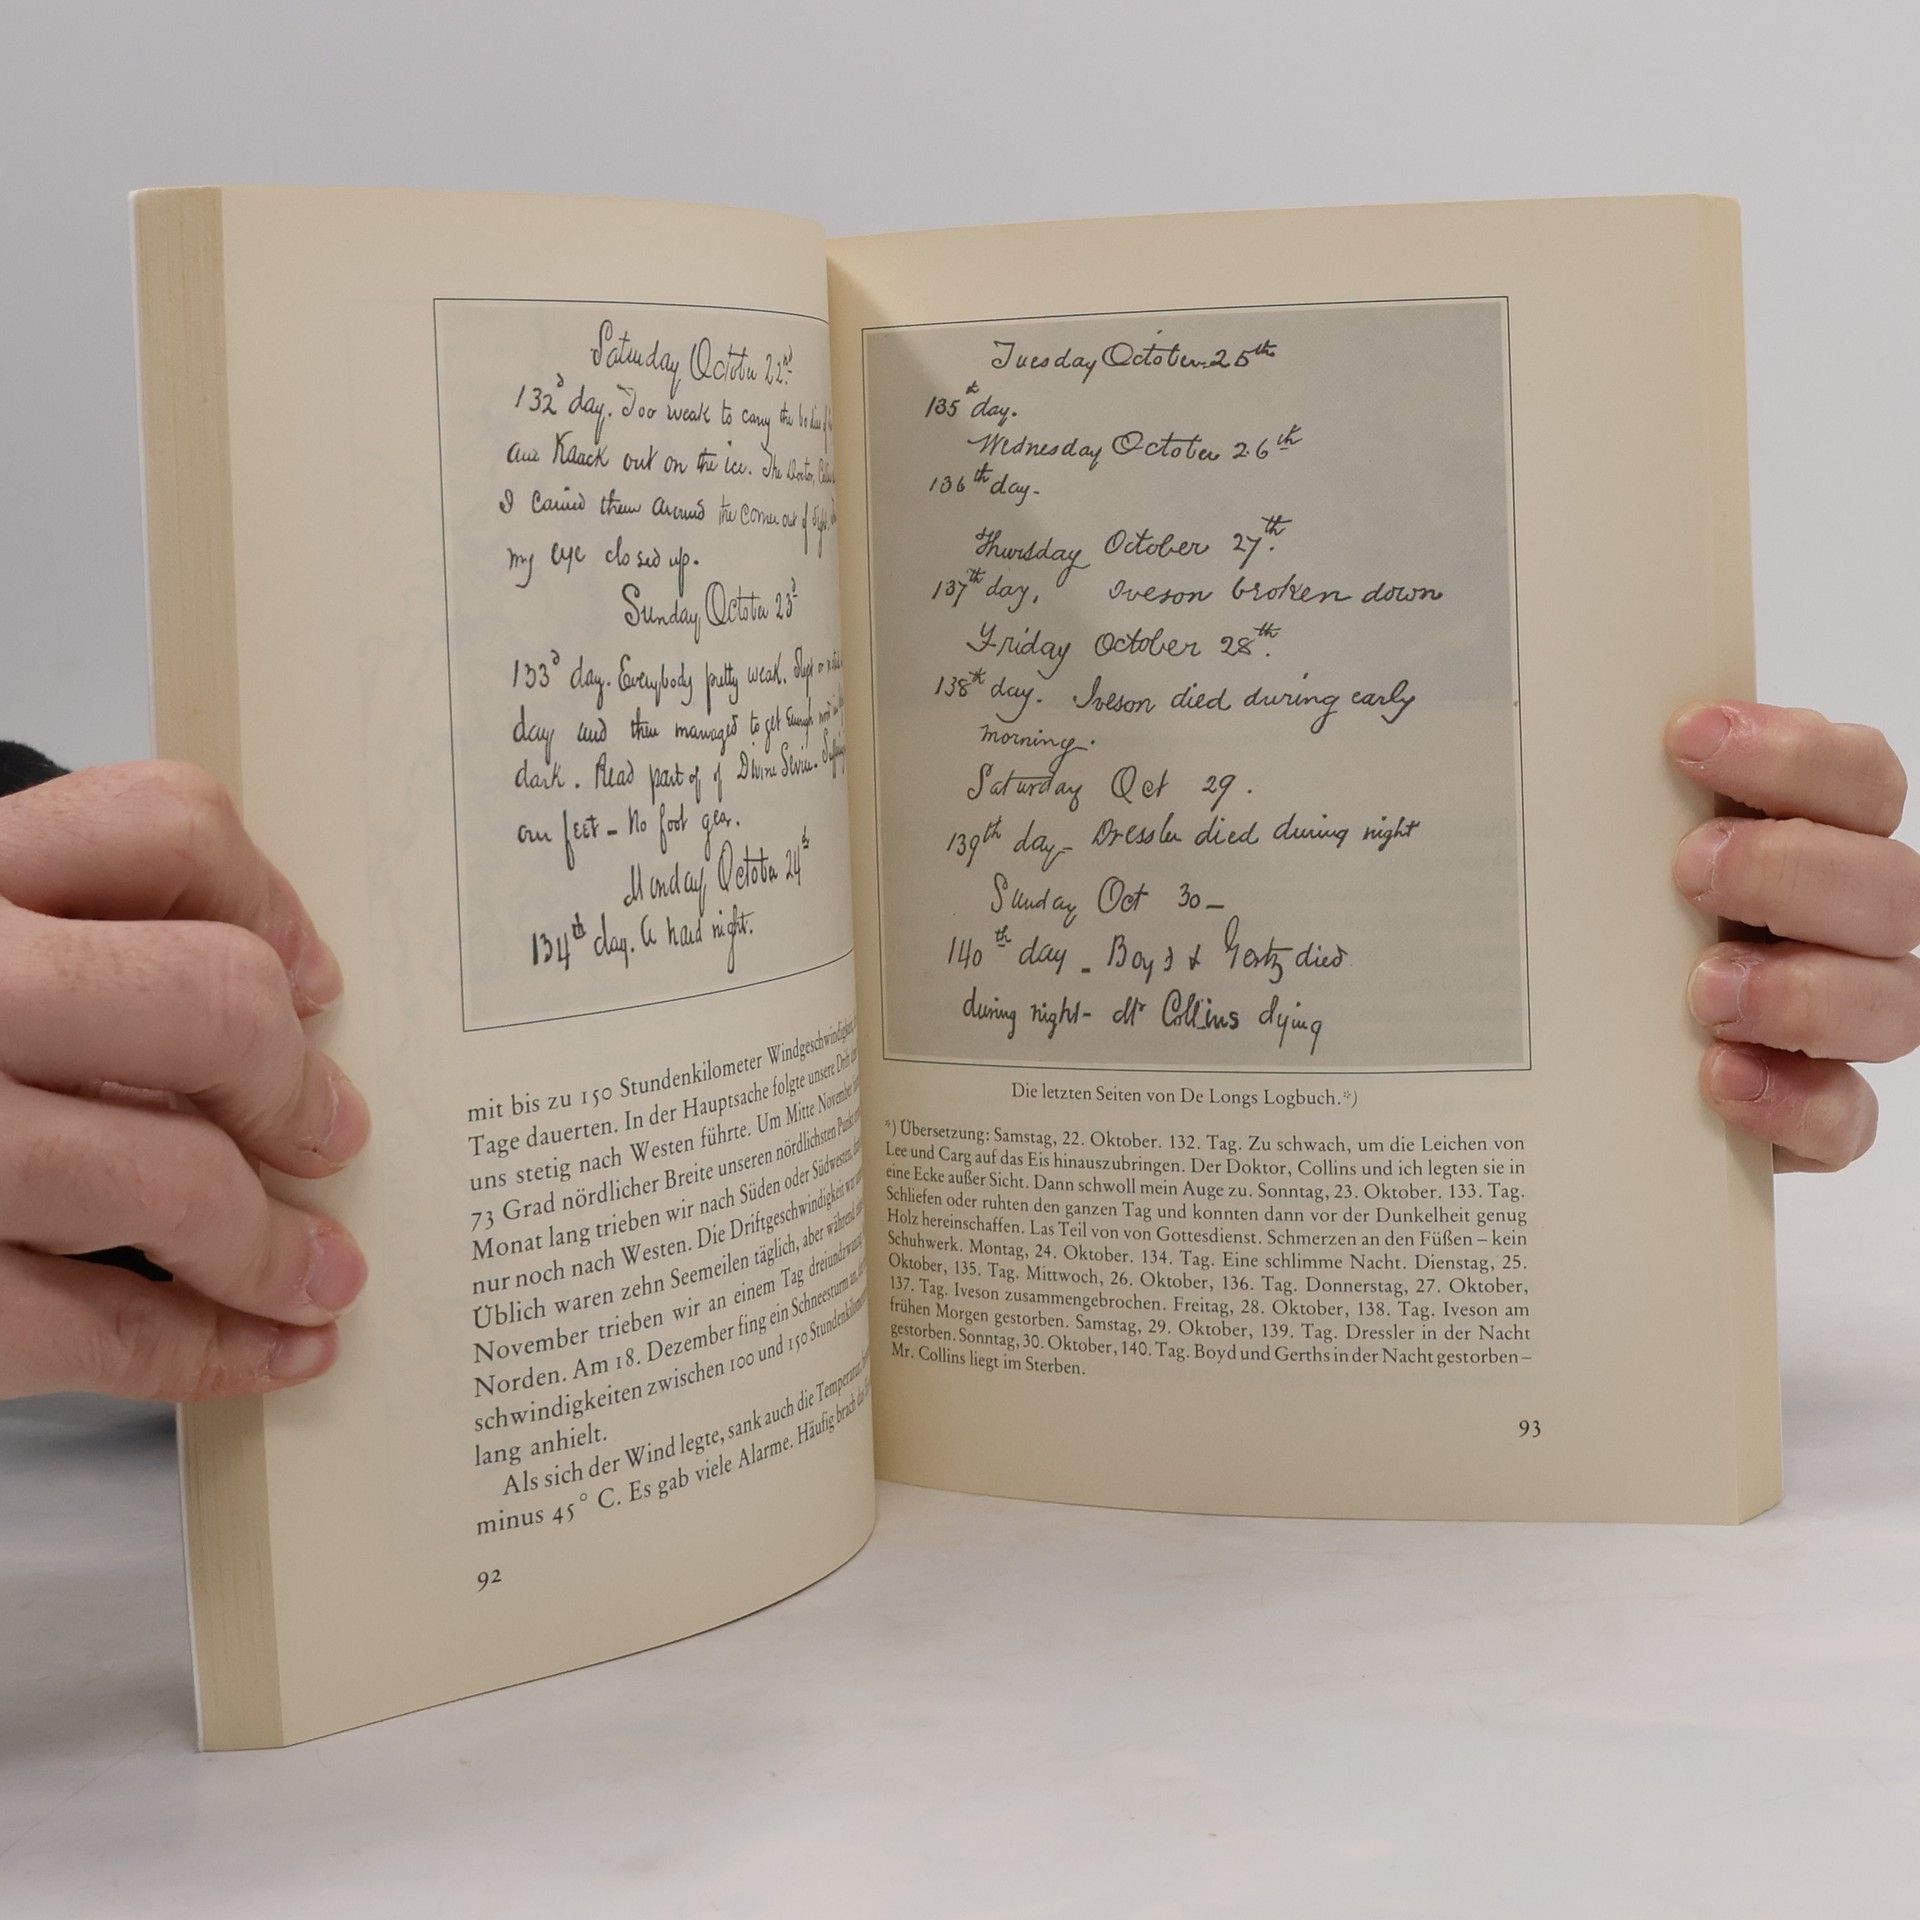 Saturday October 22nd
132d day. Too weak to carry the bodies of
and Kaack out on the ice. The Doctor,
I carried them around the corner out of sight.
my eye closed up.
Sunday, October 23d
133d day. Everybody pretty weak. Slept or
day and then managed to get enough
dark. Read part of of Divine Service.
our feet – No foot gear.
Monday, October 24th
134th day. A hard night.
mit bis zu 150 Stundenkilometer Windgeschwindigkeit,
Tage dauerten. In der Hauptsache folgte unsere Drift
uns stetig nach Westen führte. Um Mitte November
73 Grad nördlicher Breite unseren nördlichsten Punkt
Monat lang trieben wir nach Süden oder Südwesten,
nur noch nach Westen. Die Driftgeschwindigkeit
Üblich waren zehn Seemeilen täglich, aber während
November trieben wir an einem Tag dreiundzwanzig
Norden. Am 18. Dezember fing ein Schneesturm an,
schwindigkeiten zwischen 100 und 150 Stundenkilometer
lang anhielt.
Als sich der Wind legte, sank auch die Temperatur,
minus 45° C. Es gab viele Alarme. Häufig brach das
92
Tuesday October 25th
135th day.
Wednesday October 26th
136th day-
Thursday October 27th.
137th day, Iveson broken down
Friday October 28th.
138th day. Iveson died during early
morning.
Saturday Oct 29.
139th day – Dressler died during night
Sunday Oct 30 –
140th day – Boyd & Gortz died
during night – Mr Collins dying
Die letzten Seiten von De Longs Logbuch.*)
*) Übersetzung: Samstag, 22. Oktober. 132. Tag. Zu schwach, um die Leichen von
Lee und Carg auf das Eis hinauszubringen. Der Doktor, Collins und ich legten sie in
eine Ecke außer Sicht. Dann schwoll mein Auge zu. Sonntag, 23. Oktober. 133. Tag.
Schliefen oder ruhten den ganzen Tag und konnten dann vor der Dunkelheit genug
Holz hereinschaffen. Las Teil von von Gottesdienst. Schmerzen an den Füßen – kein
Schuhwerk. Montag, 24. Oktober. 134. Tag. Eine schlimme Nacht. Dienstag, 25.
Oktober, 135. Tag. Mittwoch, 26. Oktober, 136. Tag. Donnerstag, 27. Oktober,
137. Tag. Iveson zusammengebrochen. Freitag, 28. Oktober, 138. Tag. Iveson am
frühen Morgen gestorben. Samstag, 29. Oktober, 139. Tag. Dressler in der Nacht
gestorben. Sonntag, 30. Oktober, 140. Tag. Boyd und Gerths in der Nacht gestorben –
Mr. Collins liegt im Sterben.
93